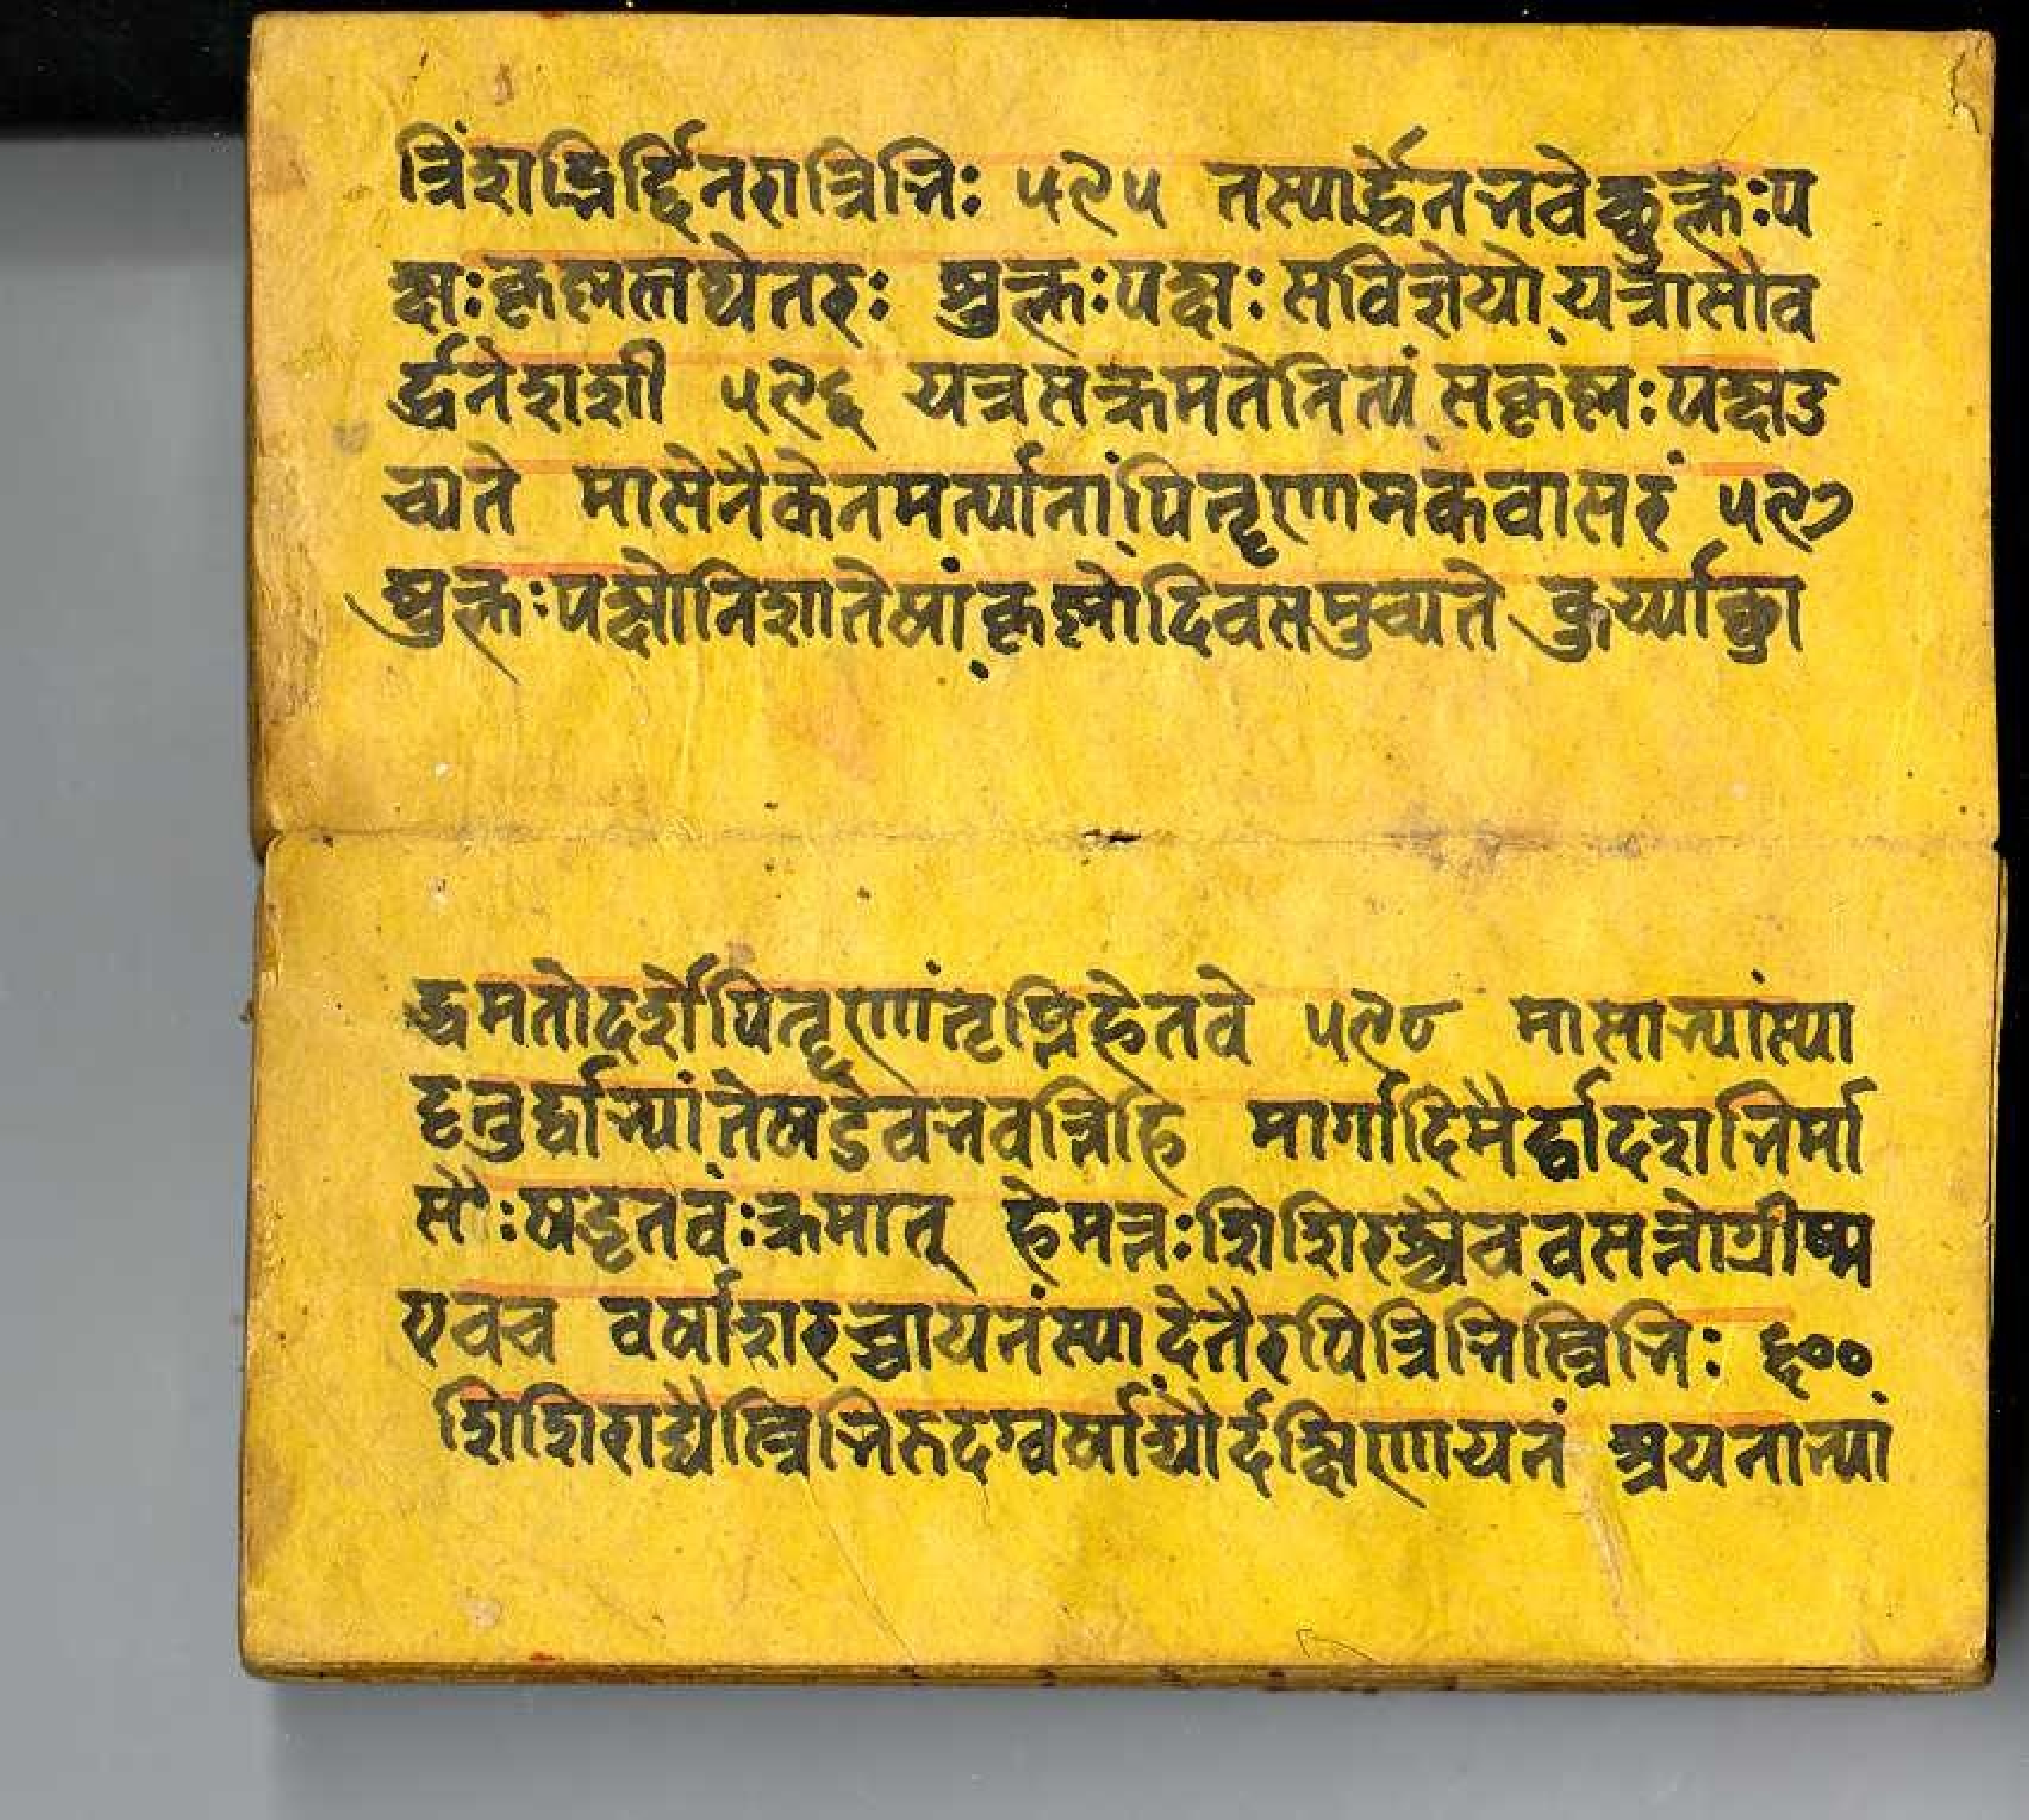 त्रिंशद्भिर्द्दिनरात्रिभिः ५९५ तस्यार्द्धेनभवेछुक्लःप
क्षःकृष्णस्तथेतरः शुक्लःपक्षःसविज्ञेयोयत्रासौव
र्द्धतेशशी ५९६ यत्रसक्रमतेनित्यंसकृष्णःपक्षउ
च्यते मासेनैकेनमर्त्यानांपितॄणामेकवासरं ५९७
शुक्लःपक्षोनिशातेषांकृष्णोदिवसमुच्यते कुर्य्याछ्रा
द्धमतोदर्शेपितॄणांतृप्तिहेतवे ५९८ मासाभ्यांस्या
दृतुर्द्वाभ्यांतेषडेवभवन्तिहि मार्गादिमैर्द्वादशभिर्मा
सैःषडृतवःक्रमात् हेमन्तःशिशिरश्चैववसन्तोग्रीष्म
एवच वर्षाशरच्चायनंस्यादेतैरपित्रिभिस्त्रिभिः ६००
शिशिराद्यैस्त्रिभिरुदग्वर्षाद्यैर्दक्षिणायनं अयनाभ्यां